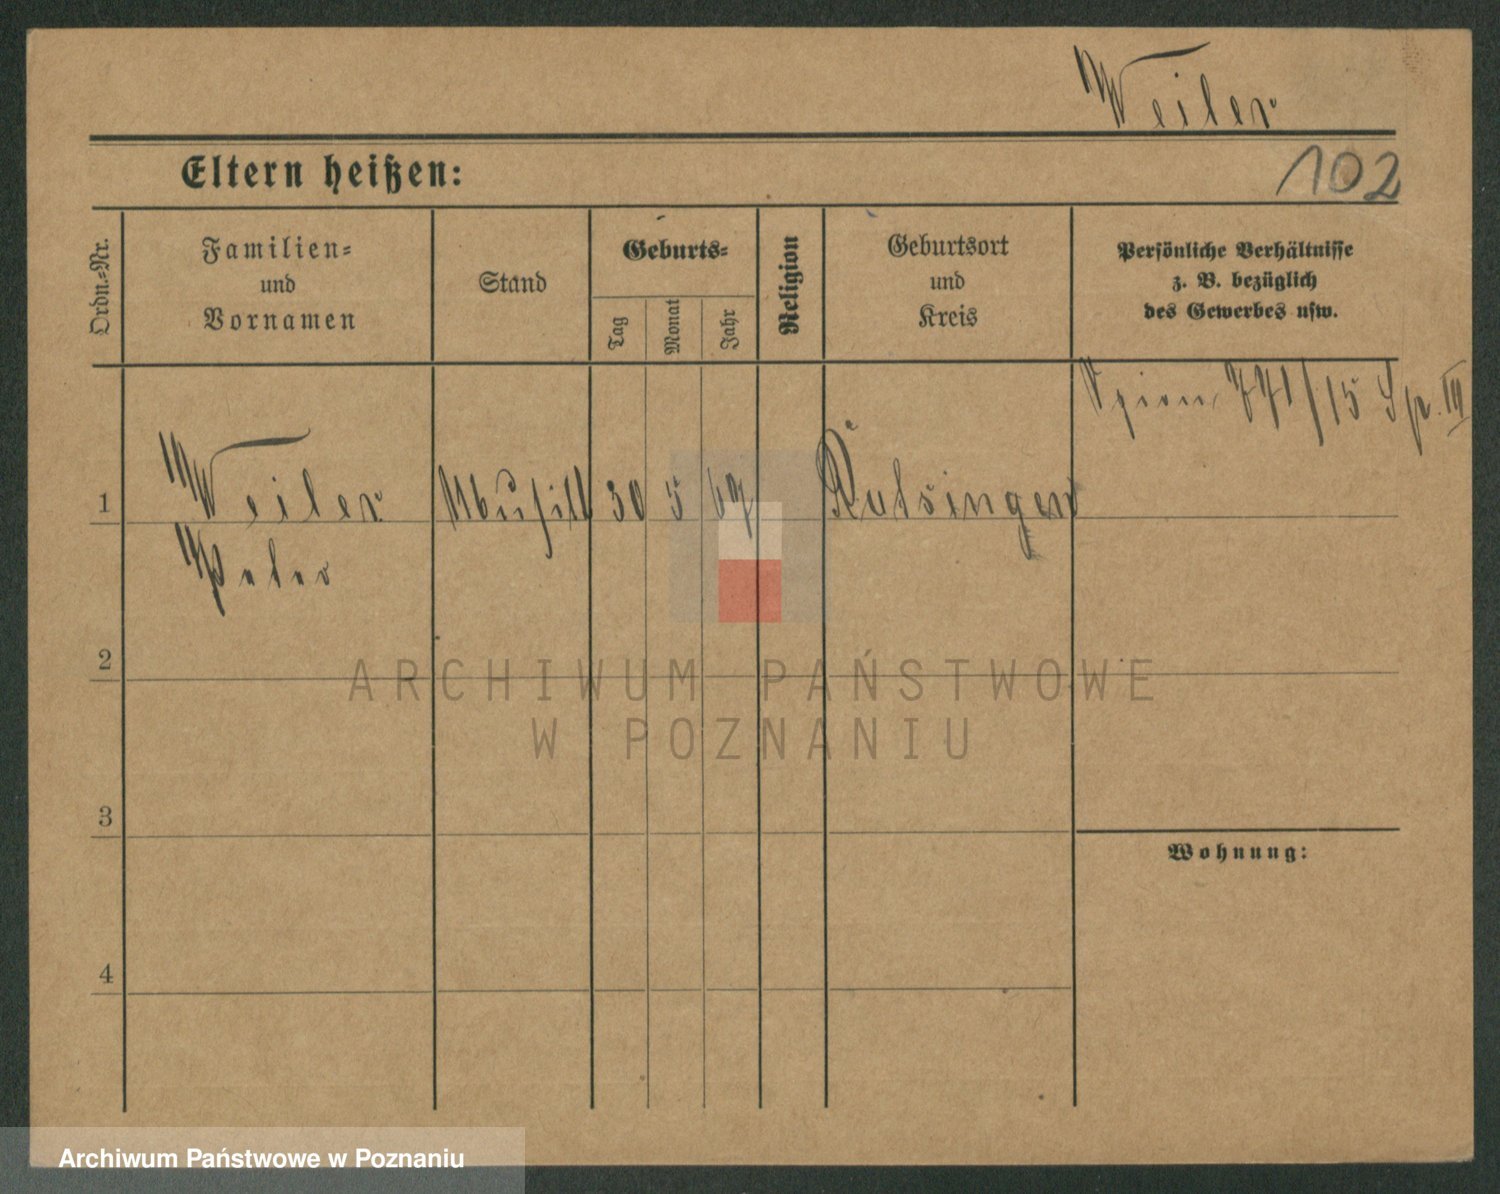 Weiler
Eltern heißen:
102
Ordn.-Nr.
Familien-
und
Vornamen
Stand
Geburts-
Tag
Monat
Jahr
Religion
Geburtsort
und
Kreis
Persönliche Verhältnisse
z. B. bezüglich
des Gewerbes usw.
Spion 771/15 Sp. III
1
Weiler
Peter
30
5
67
2
ARCHIWUM PAŃSTWOWE
W POZNANIU
3
Wohnung:
4
Archiwum Państwowe w Poznaniu